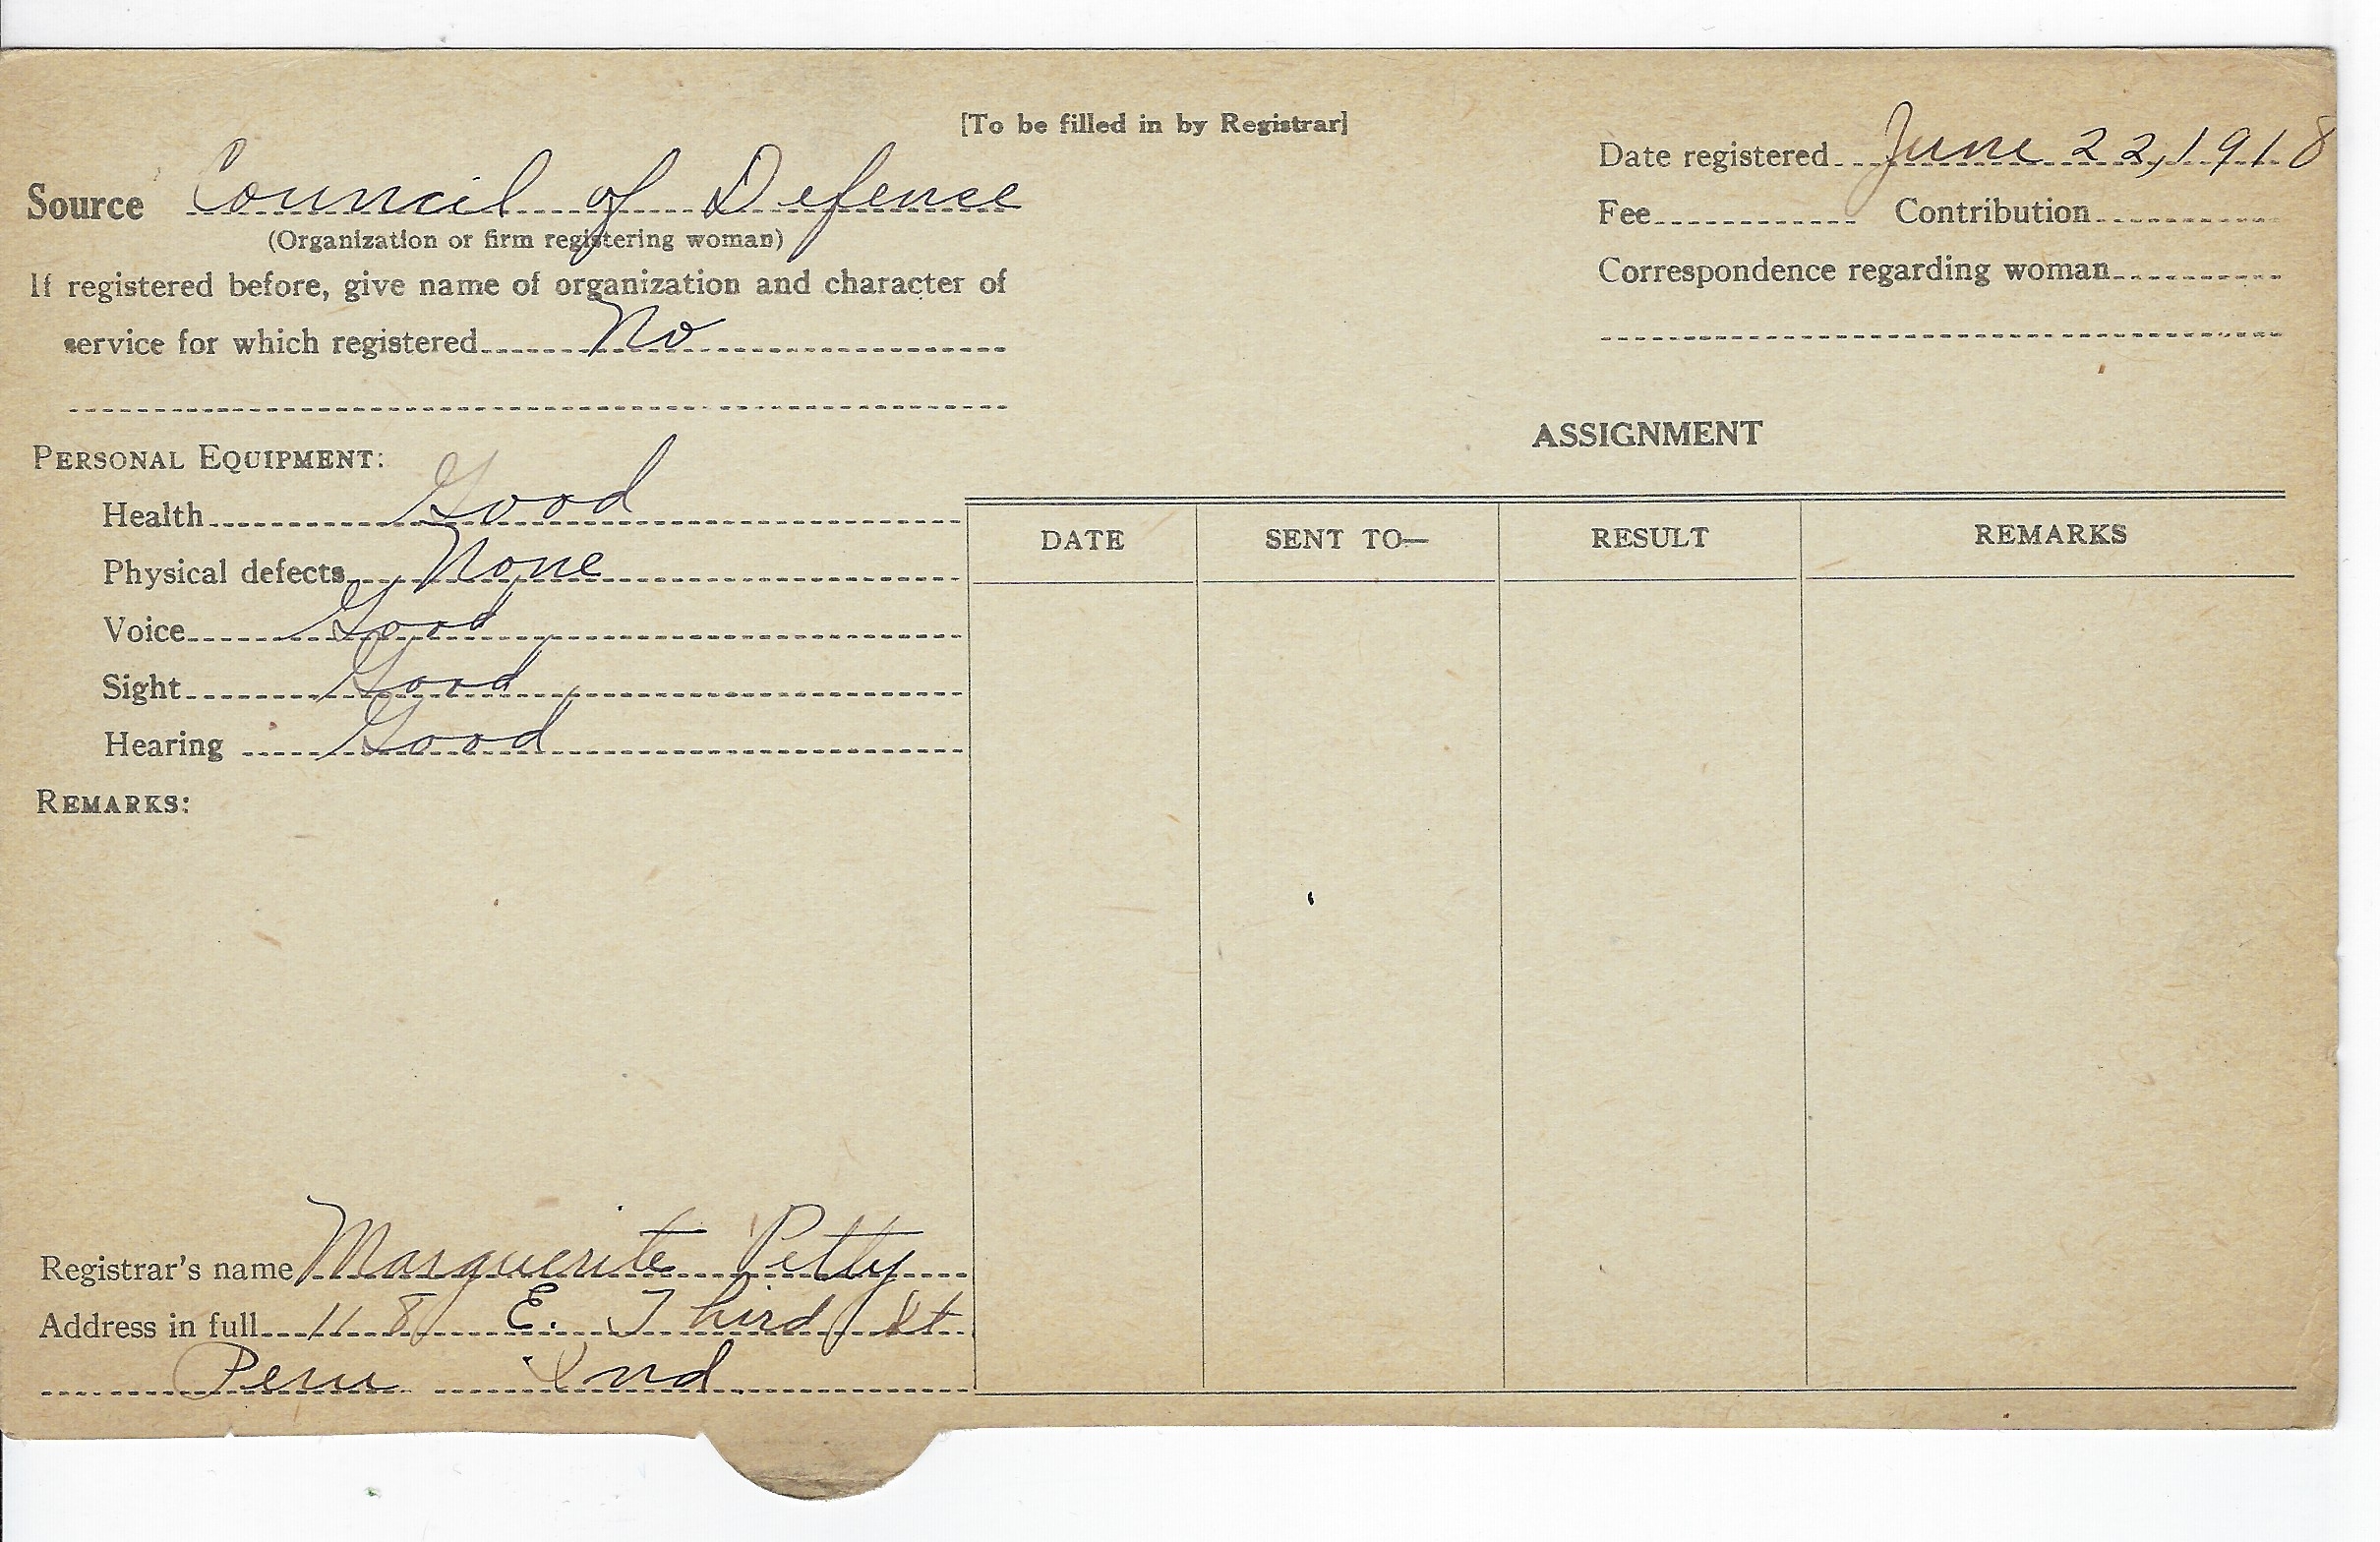 [To be filled in by Registrar]
Source Council of Defence
(Organization or firm registering woman)
If registered before, give name of organization and character of
service for which registered No
Date registered June 22, 1918
Fee Contribution
Correspondence regarding woman
PERSONAL EQUIPMENT:
Health Good
Physical defects None
Voice Good
Sight Good
Hearing Good
REMARKS:
ASSIGNMENT
DATE SENT TO— RESULT REMARKS
Registrar's name Marguerite Petty
Address in full 118 E. Third St
Peru Ind